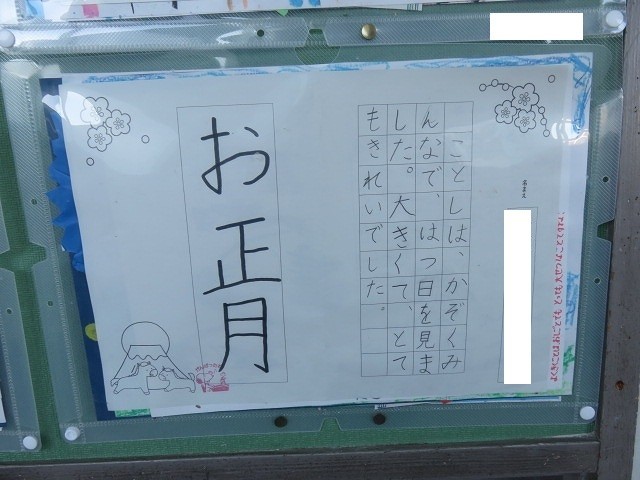 なまえ
ことしは、かぞくみ
んなで、はつ日を見ま
した。大きくて、とて
もきれいでした。
お正月